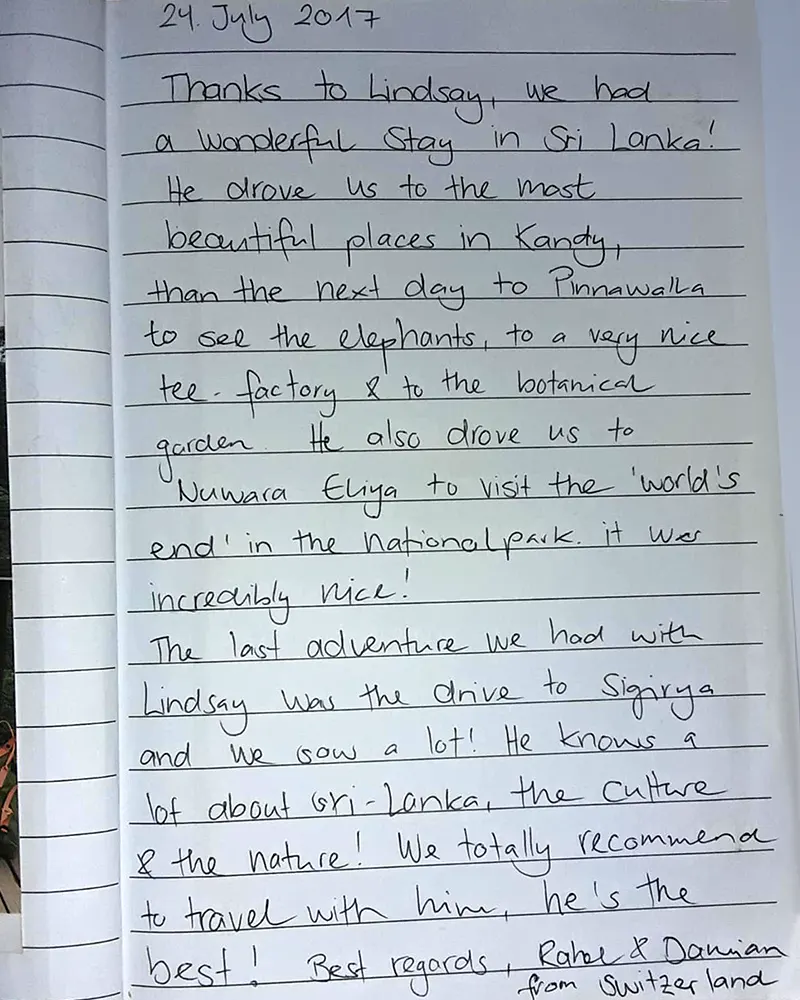 24. July 2017
Thanks to Lindsay, we had
a wonderful stay in Sri Lanka!
He drove us to the most
beautiful places in Kandy,
than the next day to Pinnawalla
to see the elephants, to a very nice
tee-factory & to the botanical
garden. He also drove us to
Nuwara Eliya to visit the 'world's
end' in the nationalpark. it was
incredibly nice!
The last adventure we had with
Lindsay was the drive to Sigirya
and we saw a lot! He knows a
lot about Sri-Lanka, the culture
& the nature! We totally recommend
to travel with him, he's the
best! Best regards, Rahel & Damian
from Switzerland